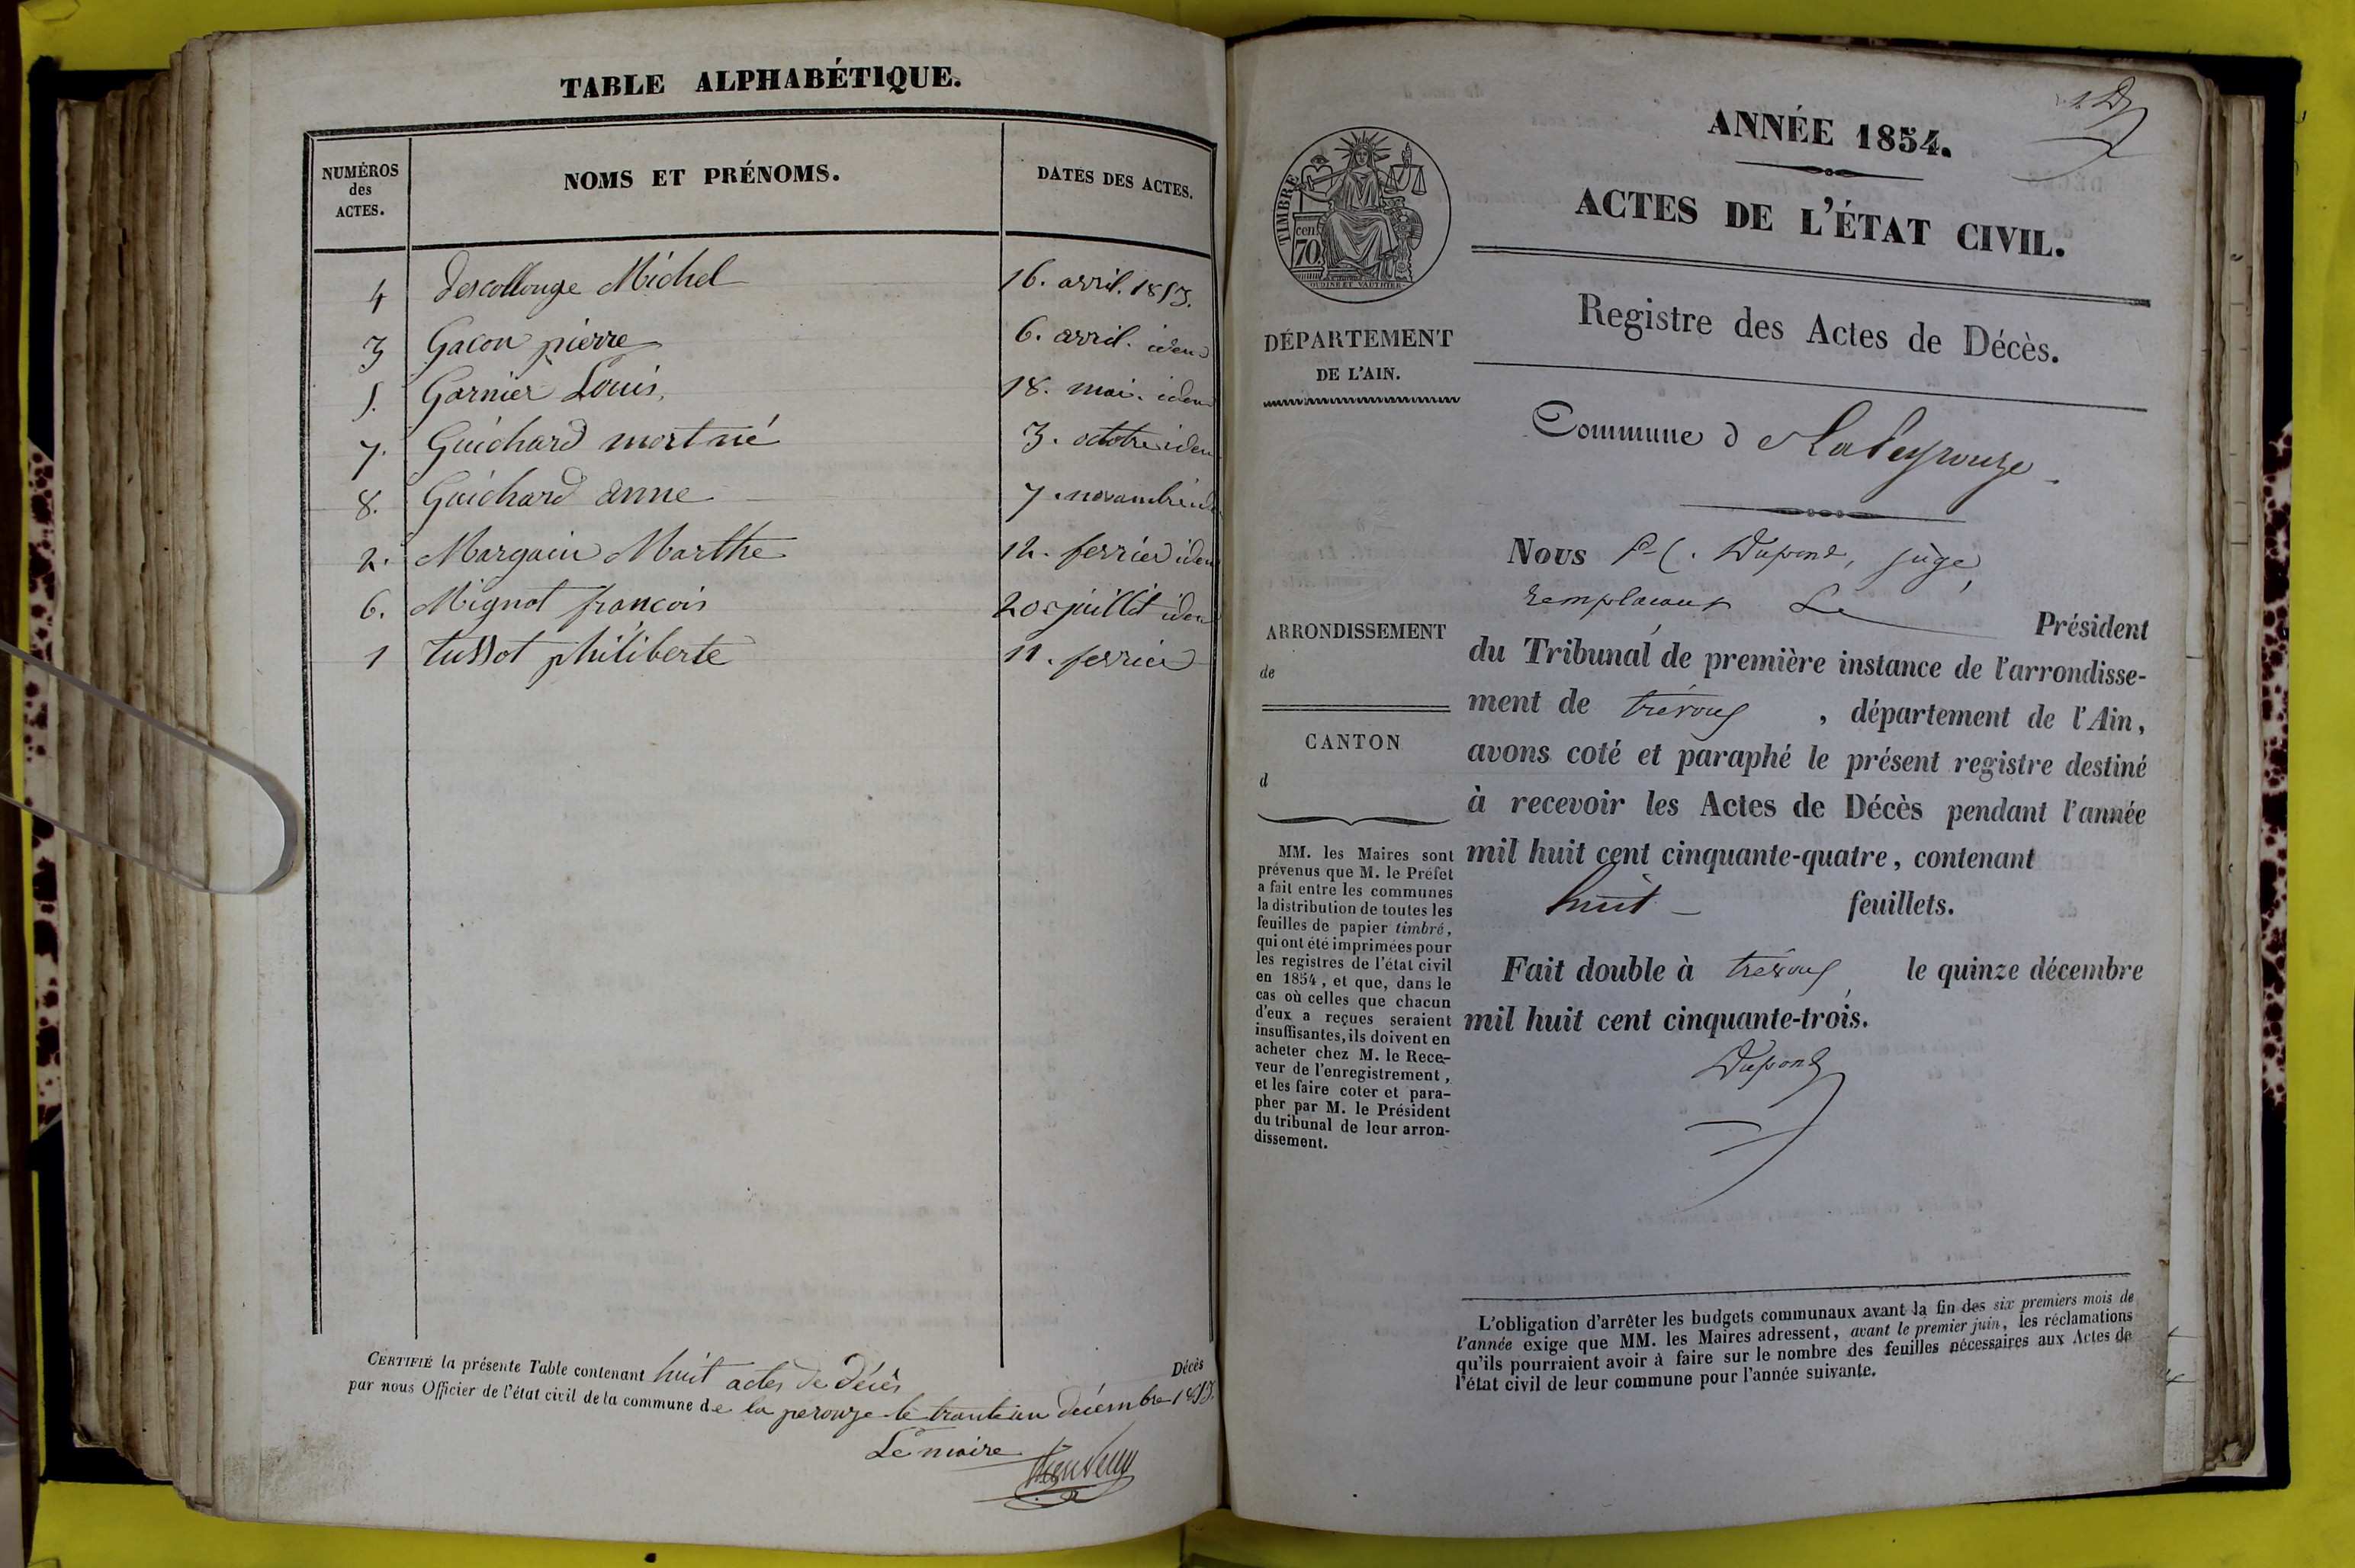 TABLE ALPHABÉTIQUE.
NUMÉROS
des
ACTES.
NOMS ET PRÉNOMS.
DATES DES ACTES.
4 descollonge Michel 16. avril. 1853.
3 Gacon pierre 6. avril. idem
5. Garnier Louis, 18. mai. idem
7. Guichard mort né 3. octobre idem
8. Guichard anne 7. novembre id
2. Margain Marthe 12. fevrier idem
6. Mignot françois 20. juillet idem
1 tussot philiberte 11. fevrier
CERTIFIÉ la présente Table contenant huit actes de décès Décès
par nous Officier de l'état civil de la commune de la perouze le trante un decembre 1853.
Le maire
ANNÉE 1854.
ACTES DE L'ÉTAT CIVIL.
Registre des Actes de Décès.
TIMBRE
cent
70
OUDINÉ ET VAUTHIER
DÉPARTEMENT
DE L'AIN.
ARRONDISSEMENT
de
CANTON
d
MM. les Maires sont
prévenus que M. le Préfet
a fait entre les communes
la distribution de toutes les
feuilles de papier timbré,
qui ont été imprimées pour
les registres de l'état civil
en 1854, et que, dans le
cas où celles que chacun
d'eux a reçues seraient
insuffisantes, ils doivent en
acheter chez M. le Rece-
veur de l'enregistrement,
et les faire coter et para-
pher par M. le Président
du tribunal de leur arron-
dissement.
Commune d e Lapeyrouze
Nous P. C. Dupond, juge,
remplacant Le Président
du Tribunal de première instance de l'arrondisse-
ment de trévoux , département de l'Ain,
avons coté et paraphé le présent registre destiné
à recevoir les Actes de Décès pendant l'année
mil huit cent cinquante-quatre, contenant
huit feuillets.
Fait double à trévoux le quinze décembre
mil huit cent cinquante-trois.
Dupond
L'obligation d'arrêter les budgets communaux avant la fin des six premiers mois de
l'année exige que MM. les Maires adressent, avant le premier juin, les réclamations
qu'ils pourraient avoir à faire sur le nombre des feuilles nécessaires aux Actes de
l'état civil de leur commune pour l'année suivante.